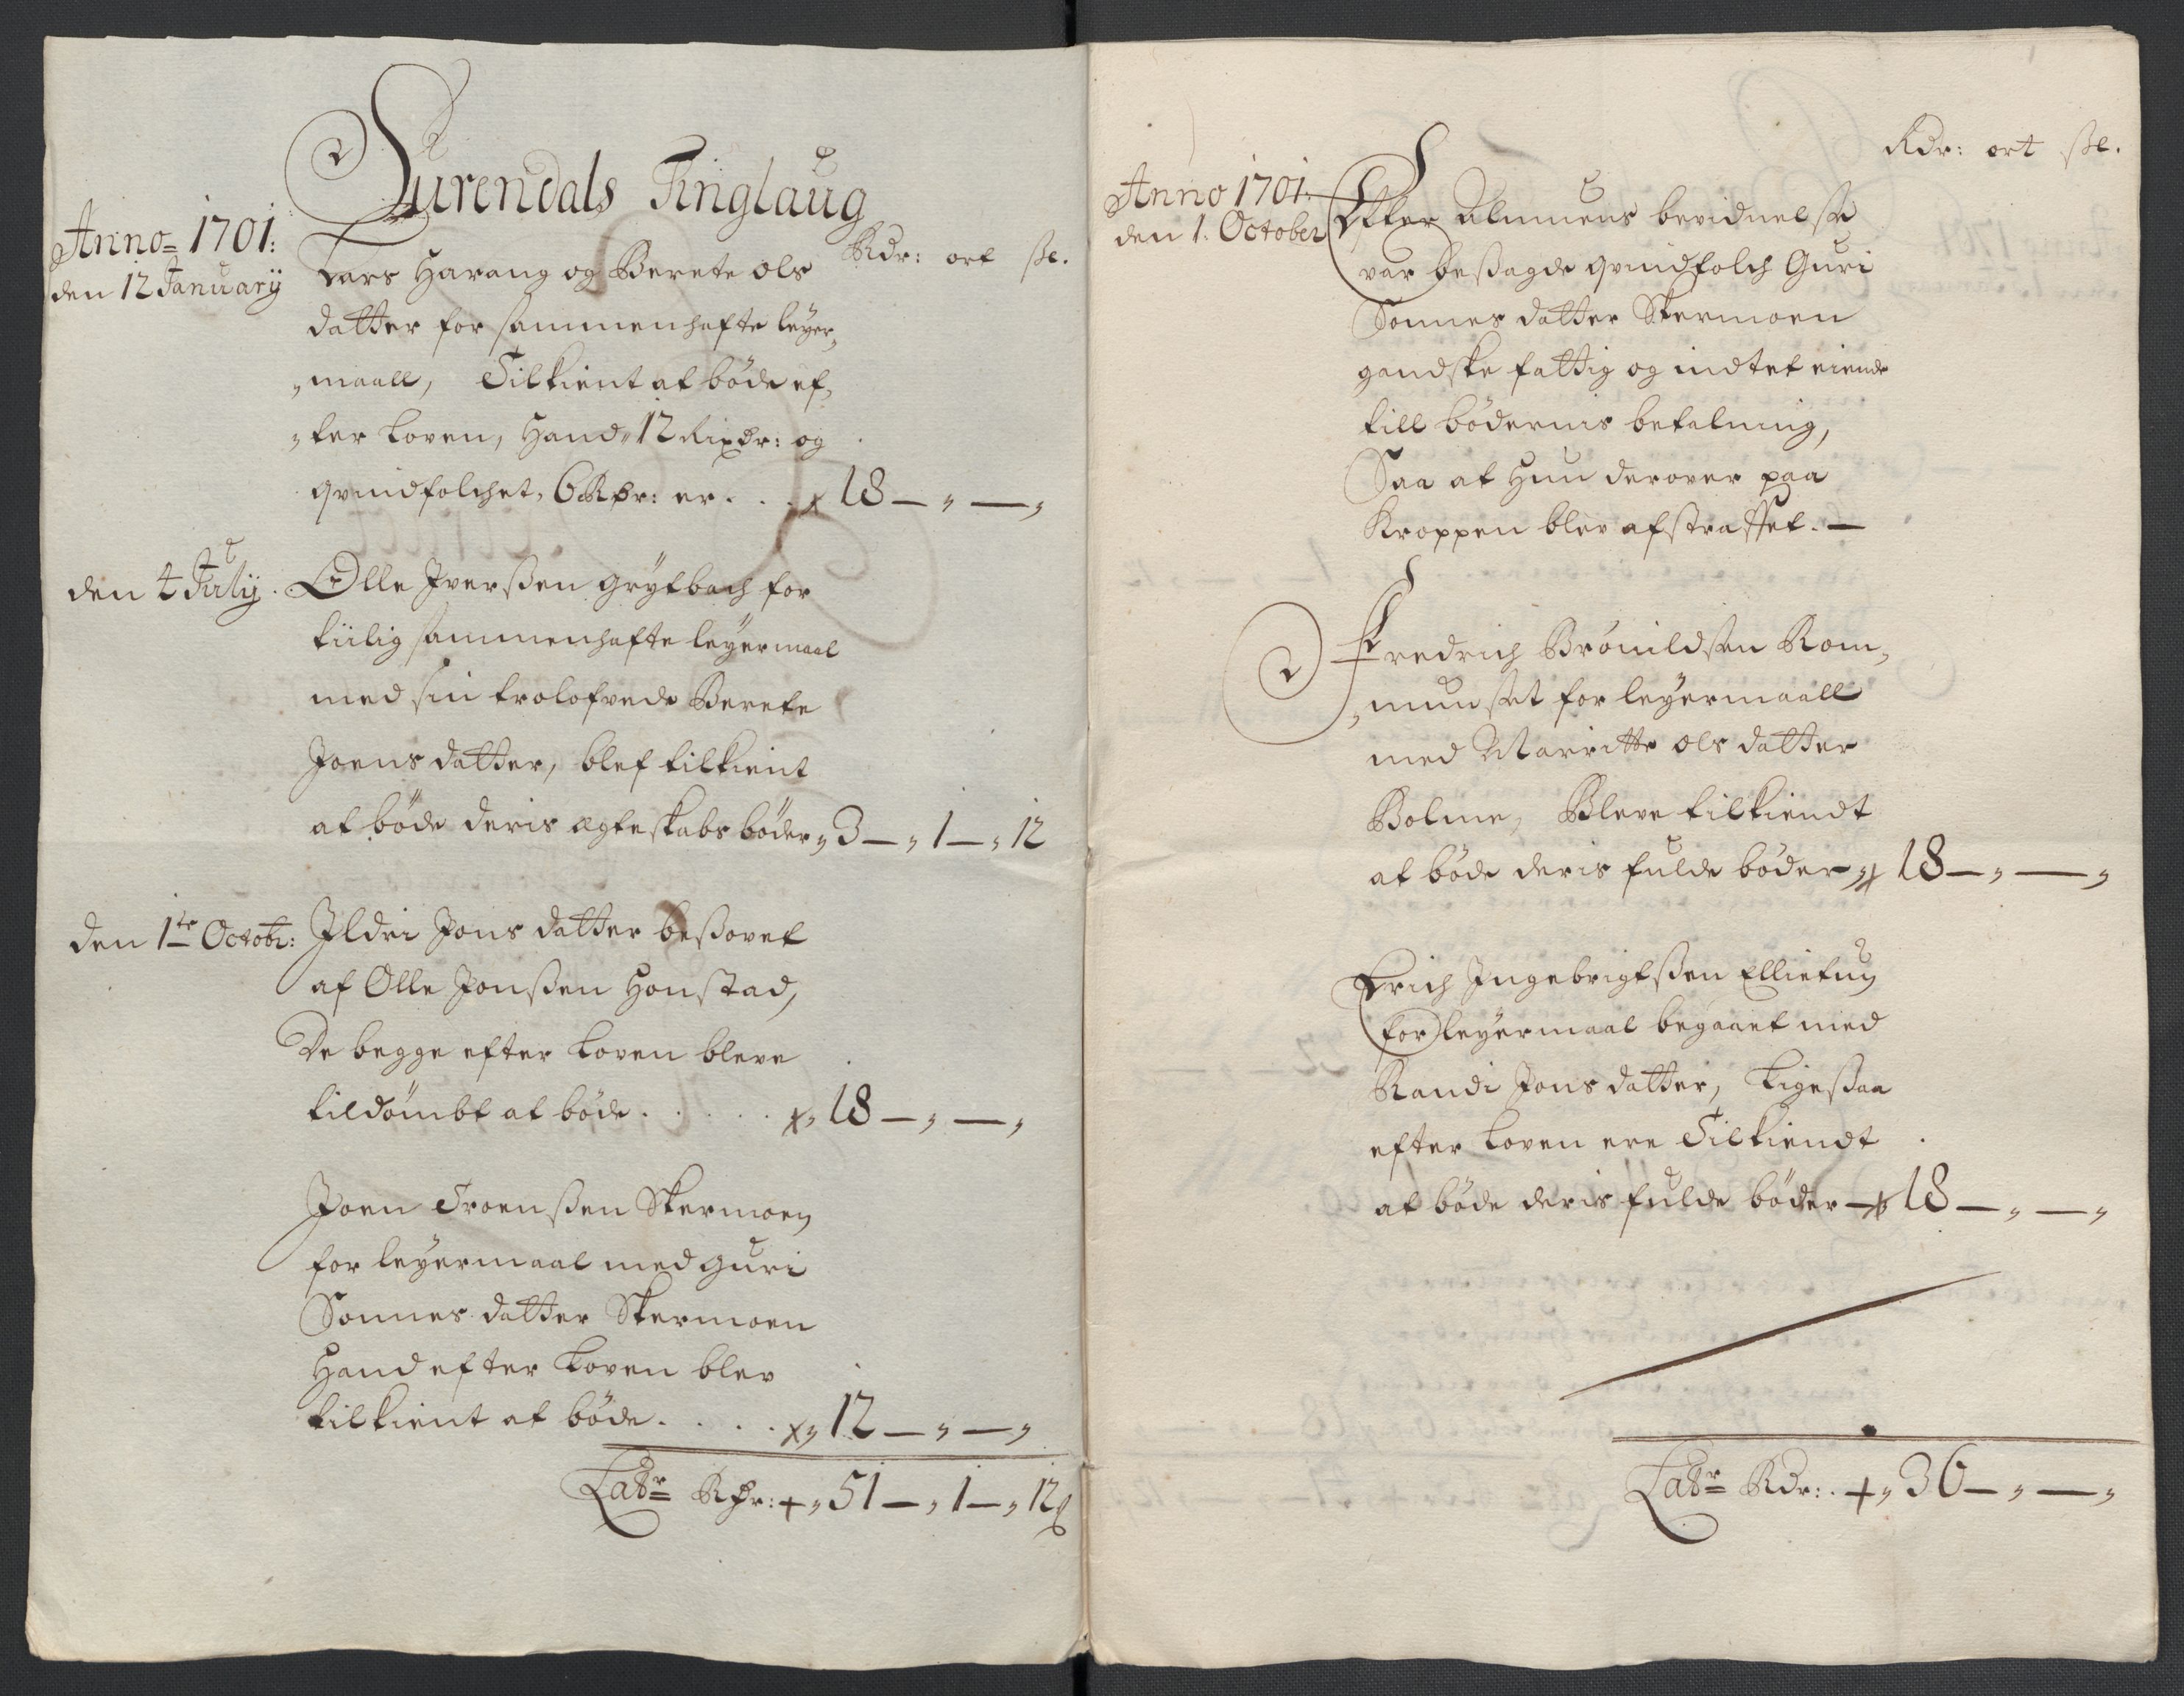 Surendals Tinglaug
Anno 1701:
den 12 January
Rdr: ort ße.
Lars Harang og Berete Ols
datter for sammenhafte leyer„
„maall, Tilkient at böde ef„
„ter Loven, Hand 12 Rixdr: og
qvindfolchet, 6 Rdr: er . . . x 18 — „ — „
den 4 July. Olle Iverßen Grytbach for
tiilig sammenhafte leyermaal
med sin trolofvede Berete
Joens datter, blef tilkient
at böde deris ægteskabs böder „ 3 — „ 1 — „ 12
den 1te Octobr: Ildri Jons datter besovet
af Olle Jonßen Honstad,
De begge efter Loven bleve
tildömbt at böde . . . . . x „ 18 — „ — „
Joen Troenßen Skermoen
for leyermaal med Guri
Sonnes datter Skermoen
Hand efter Loven blev
tilkient at böde . . . . x „ 12 — „ — „
Latr Rdr: + „ 51 — „ 1 — „ 12
Rdr: ort ße.
Anno 1701:
den 1. October
Efter Almuens bevidnelse
var besagde qvindfolch Guri
Sonnes datter Skermoen
gandske fattig og indtet eiende
till bödernis betalning,
Saa at Hun derover paa
Kroppen blev afstraffet. —
Fredrich Brönildsen Rom„
„mundset for leyermaall
med Marritte Ols datter
Bolme, Bleve tilkiendt
at böde deris fulde böder „ x 18 — „ — „
Erich Ingebrigtßen Ellietun
for leyermaal begaaet med
Randi Jons datter, Ligesaa
efter Loven ere Tilkiendt
at böde deris fulde böder — x 18 — „ — „
Latr Rdr: . + „ 36 — „ — „